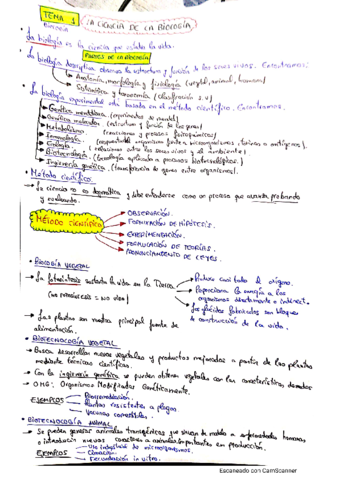 TEMA 1
LA CIENCIA DE LA BIOLOGÍA
La biología es la ciencia que estudia la vida.
RAMAS DE LA BIOLOGÍA
La biología descriptiva observa la estructura y función de los seres vivos. Encontramos:
Anatomía, morfología y fisiología (vegetal, animal, humana)
Sistemática y taxonomía (clasificación s.v)
La biología experimental está basada en el método científico. Encontramos:
Genética mendeliana (experimentos de mendel)
Genética molecular (estructura y función de los genes)
Metabolismo (reacciones y procesos fisioquímicos)
Inmunología
Ecología (relaciones entre los seres vivos y el ambiente)
Biotecnología (tecnología aplicada a procesos biotecnológicos)
Ingeniería genética (transferencia de genes entre organismos)
Método científico
La ciencia no es dogmática y debe entenderse como un proceso que avanza probando
y evaluando.
MÉTODO CIENTÍFICO
OBSERVACIÓN.
FORMULACIÓN DE HIPÓTESIS.
EXPERIMENTACIÓN.
FORMULACIÓN DE TEORÍAS.
PRONUNCIAMIENTO DE LEYES.
BIOLOGÍA VEGETAL
La fotosíntesis sustenta la vida en la Tierra
(no fotosíntesis = NO vida)
Produce cantidad de oxígeno.
Proporciona la energía a los
organismos directamente o indirect.
de construcción de la vida.
Las plantas son nuestra principal fuente de
alimentación.
BIOTECNOLOGÍA VEGETAL
Busca desarrollar nuevos vegetales y productos mejorados a partir de las plantas
mediante técnicas científicas.
Con la ingeniería genética se pueden obtener vegetales con las características deseadas
OMG: Organismos Modificados Genéticamente.
EJEMPLOS
Biorremediación.
Plantas resistentes a plagas
Vacunas comestibles.
BIOTECNOLOGÍA ANIMAL
Se pueden generar animales transgénicos que sirvan de modelo a enfermedades humanas
o introducir nuevos caracteres a animales importantes en producción.
EJEMPLOS
Uso industrial de microorganismos.
Clonación.
Fecundación in vitro.
Escaneado con CamScanner